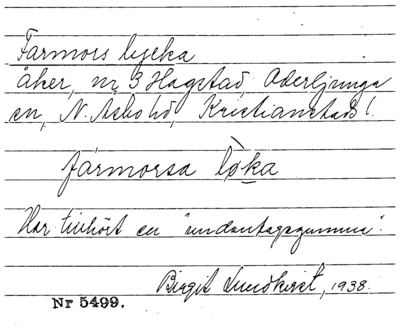 Farmors lycka
åker, nr 3 Hagstad, Oderljunga
sn, N. Åsbo hd, Kristianstads l.
fármorsa lò̱ka
Har tillhört en "undantagsgumma".
Birgit Lundkvist, 1938.
Nr 5499.